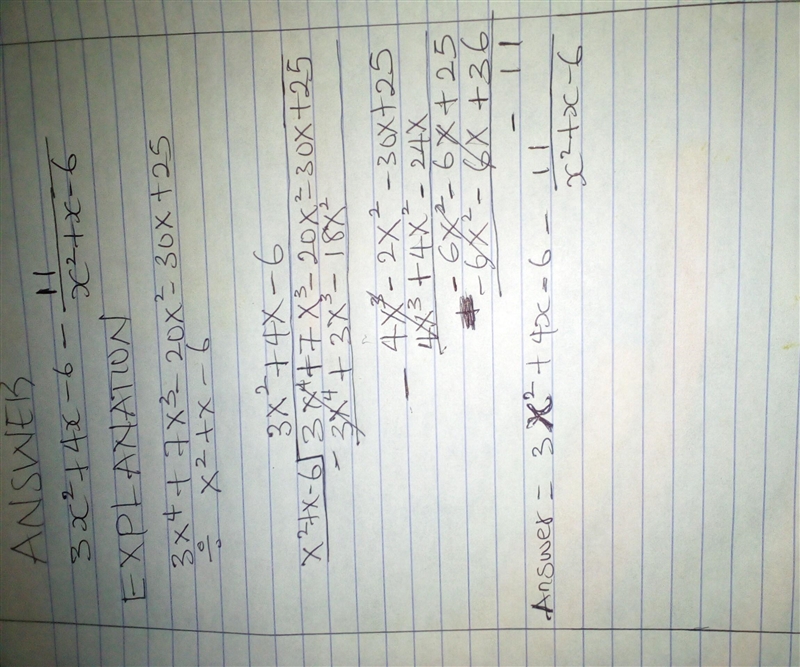 ANSWER
3x²+4x-6 - 11/x²+x-6
EXPLANATION
3x⁴+7x³-20x²-30x+25
÷ x²+x-6
3x²+4x-6
x²+x-6 3x⁴+7x³-20x²-30x+25
- 3x⁴+3x³-18x²
4x³-2x²-30x+25
- 4x³+4x²-24x
-6x²-6x+25
-6x²-6x+36
- 11
Answer = 3x²+4x-6 - 11/x²+x-6